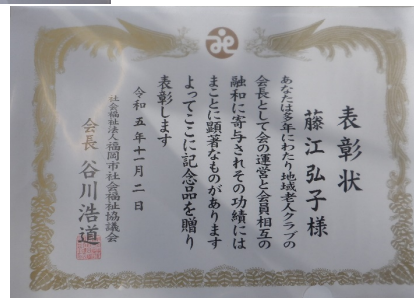 表彰状
藤江弘子様
あなたは多年にわたり地域老人クラブの
会長として会の運営と会員相互の
融和に寄与されその功績には
まことに顕著なものがあります
よってここに記念品を贈り
表彰します
令和五年十一月二日
社会福祉法人福岡市社会福祉協議会
会長 谷川浩道